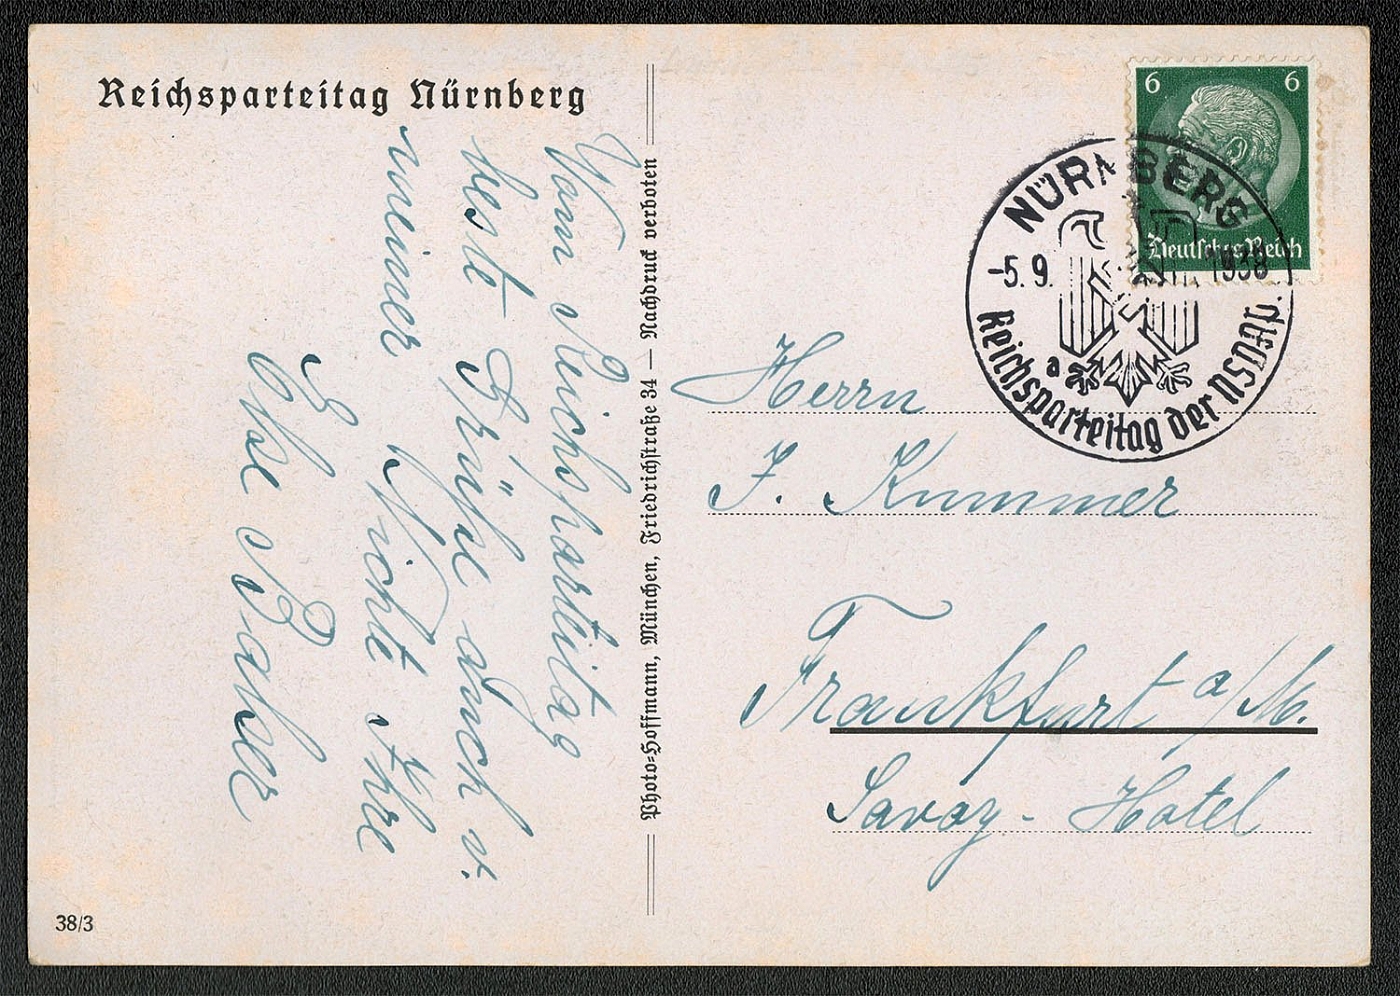 Reichsparteitag Nürnberg
Vom Reichsparteitag
beste Grüße auch v.
meiner Nichte Ihre
Else Balser
38/3
Photo-Hoffmann, München, Friedrichstraße 34 — Nachdruck verboten
6 6
Deutsches Reich
NÜRNBERG
-5.9. 1938
a
Reichsparteitag der NSDAP.
Herrn
F. Kummer
Frankfurt a/M.
Savoy-Hotel